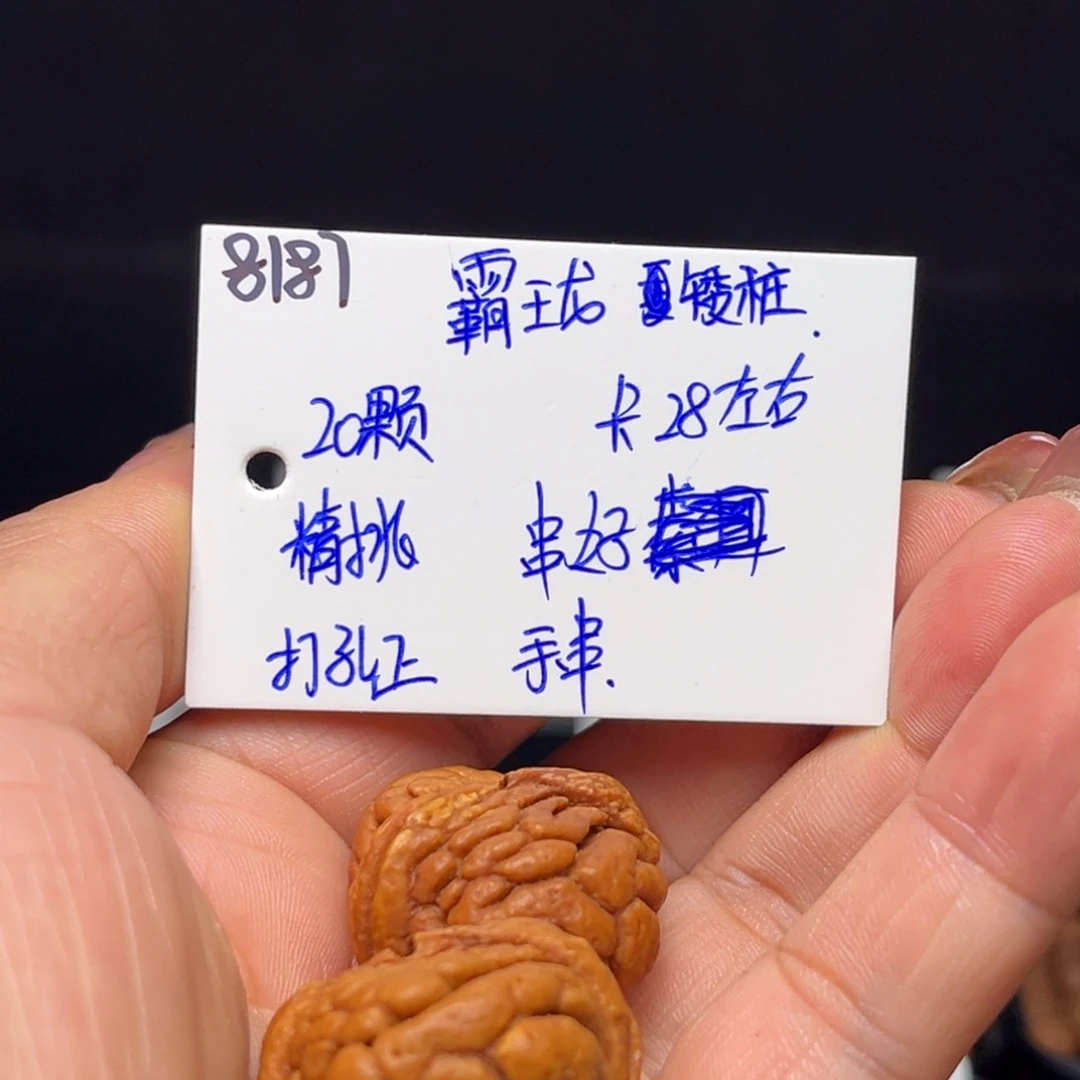 8187
霸王龙 矮桩.
20颗 卡28左右
精挑 串好
打孔正 手串.